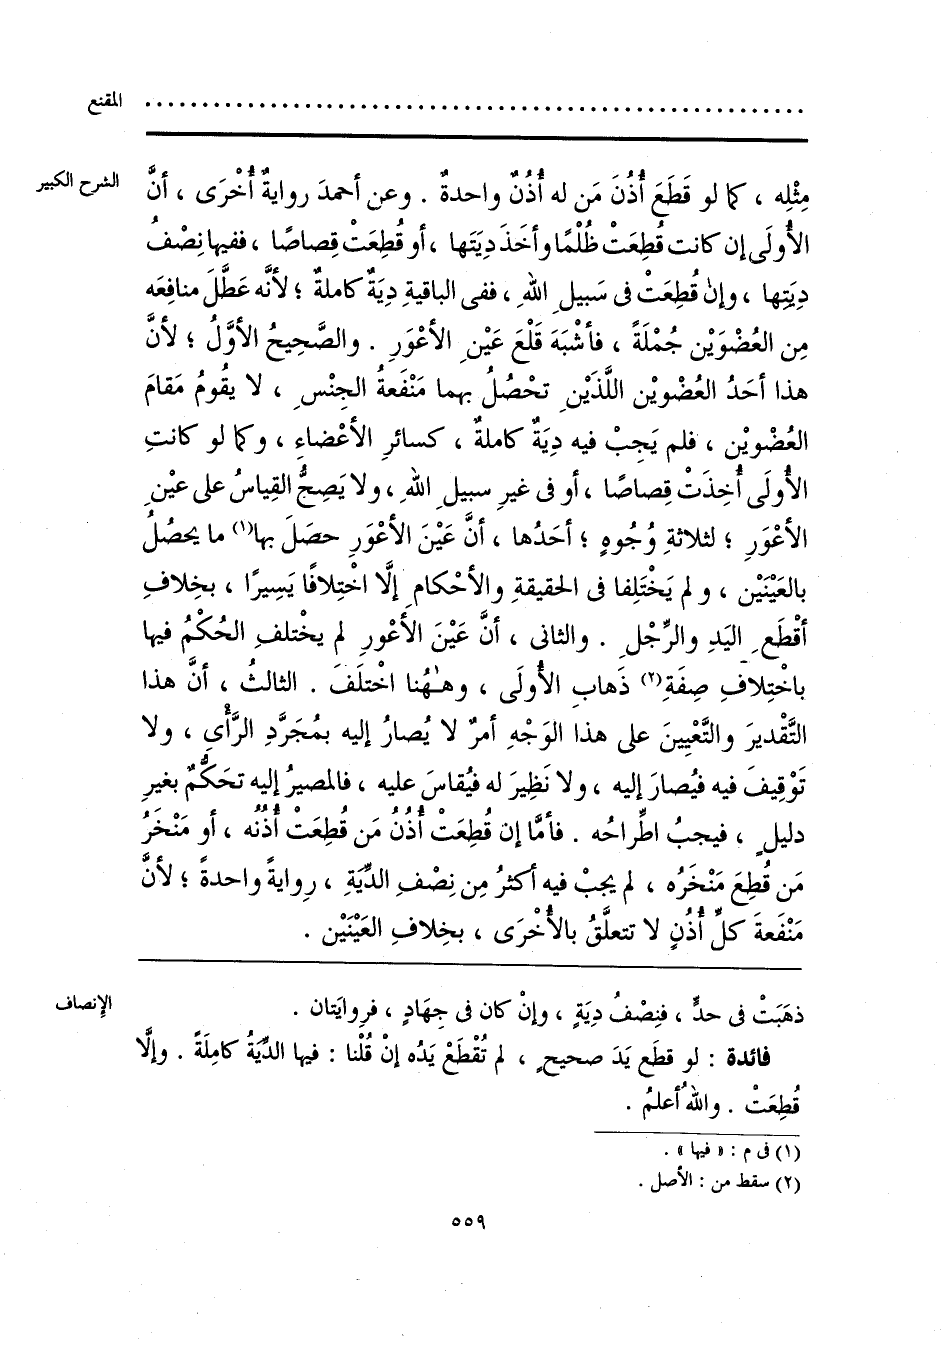 المقنع ................................................................
الشرح الكبير
مِثْلِه ، كما لو قَطَعَ أُذُنَ مَن له أُذُنٌ واحدةٌ . وعن أحمدَ روايةٌ أُخْرَى ، أنَّ
الأُولَى إن كانت قُطِعَتْ ظُلْمًا وأخَذَ دِيَتَها ، أو قُطِعَتْ قِصاصًا ، ففيها نِصْفُ
دِيَتِها ، وإن قُطِعَتْ فى سَبِيلِ اللهِ ، ففى الباقيةِ دِيَةٌ كاملةٌ ؛ لأنَّه عَطَّلَ منافِعَه
مِن العُضْوَيْن جُمْلَةً ، فأشْبَهَ قَلْعَ عَيْنِ الأعْوَرِ . والصَّحِيحُ الأوَّلُ ؛ لأنَّ
هذا أحَدُ العُضْويْن اللَّذَيْنِ تحْصُلُ بهما مَنْفَعةُ الجِنْسِ ، لا يقُومُ مَقامَ
العُضْويْن ، فلم يَجِبْ فيه دِيَةٌ كاملةٌ ، كسائرِ الأعْضاءِ ، وكما لو كانتِ
الأُولَى أُخِذَتْ قِصاصًا ، أو فى غيرِ سبيلِ اللهِ ، ولا يَصِحُّ القِياسُ على عيْنِ
الأعْوَرِ ؛ لثلاثةِ وُجُوهٍ ؛ أحَدُها ، أنَّ عَيْنَ الأعْوَرِ حصَلَ بها(١) ما يحصُلُ
بالعَيْنَيْن ، ولم يَخْتَلِفا فى الحقيقةِ والأحْكامِ إلَّا اخْتِلافًا يَسِيرًا ، بخِلافِ
أقْطَعِ اليَدِ والرِّجْلِ . والثانى ، أنَّ عَيْنَ الأعْورِ لم يخْتلفِ الحُكْمُ فيها
باخْتِلافِ صِفَةِ(٢) ذَهابِ الأُولَى ، وهـٰهُنا اخْتلَفَ . الثالثُ ، أنَّ هذا
التَّقْديرَ والتَّعْيِينَ على هذا الوَجْهِ أمرٌ لا يُصارُ إليه بمُجَرَّدِ الرَّأْىِ ، ولا
تَوْقِيفَ فيه فيُصارَ إليه ، ولا نَظِيرَ له فيُقاسَ عليه ، فالمصيرُ إليه تحَكُّمٌ بغيرِ
دليلٍ ، فيجبُ اطِّراحُه . فأمَّا إن قُطِعَتْ أُذُنُ مَن قُطِعَتْ أُذُنُه ، أو مَنْخَرُ
مَن قُطِعَ مَنْخَرُه ، لم يجبْ فيه أكثرُ مِن نِصْفِ الدِّيَةِ ، روايةً واحدةً ؛ لأنَّ
مَنْفَعةَ كلِّ أُذُنٍ لا تتعلَّقُ بالأُخْرَى ، بخِلافِ العَيْنَيْن .
الإنصاف
ذهَبَتْ فى حدٍّ ، فنِصْفُ دِيَةٍ ، وإنْ كان فى جِهَادٍ ، فروايَتان .
فائدة : لو قطَع يَدَ صحيحٍ ، لم تُقْطَعْ يَدُه إنْ قُلْنا : فيها الدِّيَةُ كامِلَةً . وإلَّا
قُطِعَتْ . واللهُ أعلمُ .
(١) فى م : « فيها » .
(٢) سقط من : الأصل .
٥٥٩